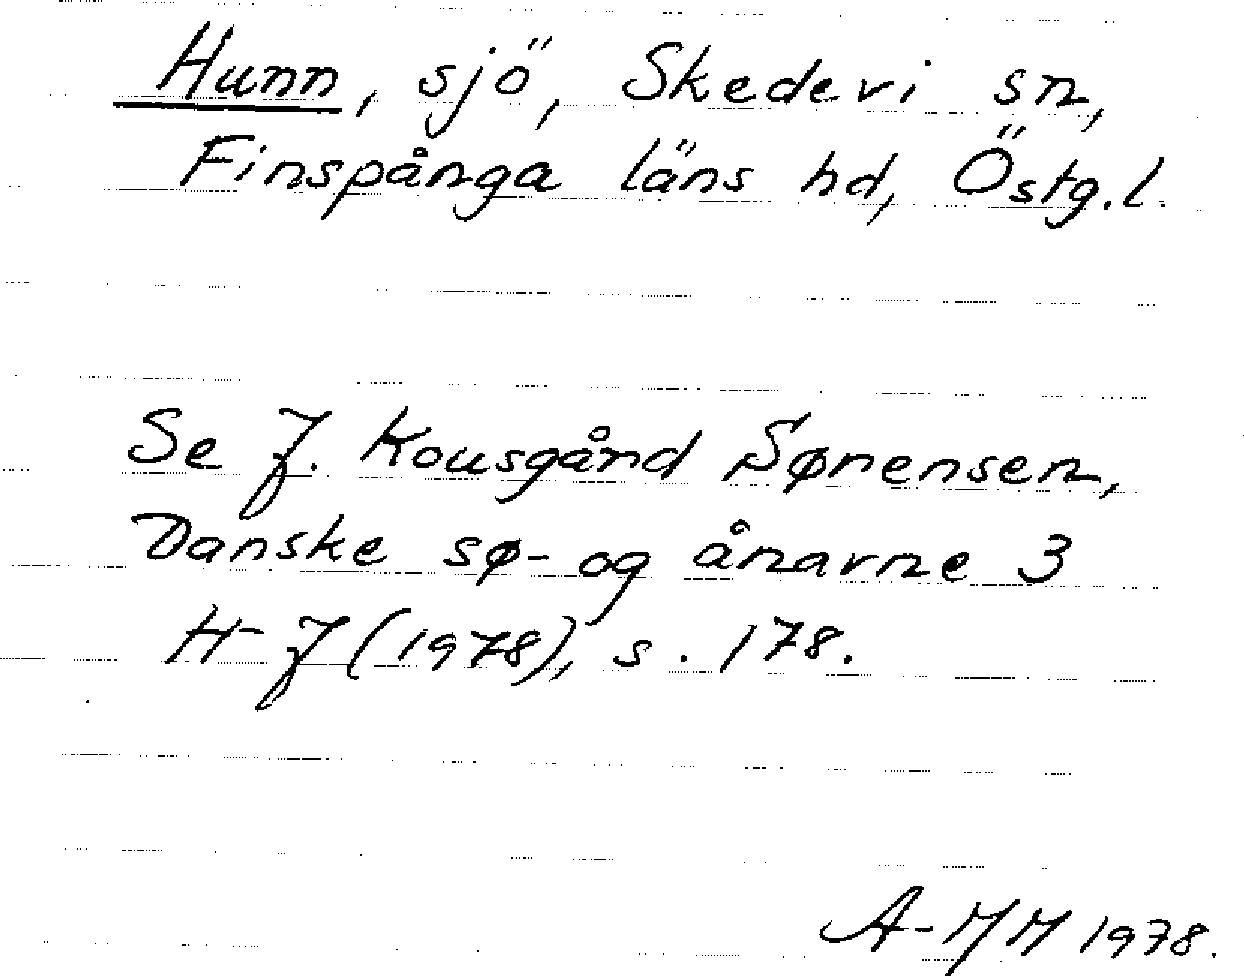 Hunn, sjö, Skedevi sn,
Finspånga läns hd, Östg.l.
Se J. Kousgård Sørensen,
Danske sø- og ånavne 3
H-J (1978), s. 178.
1978.